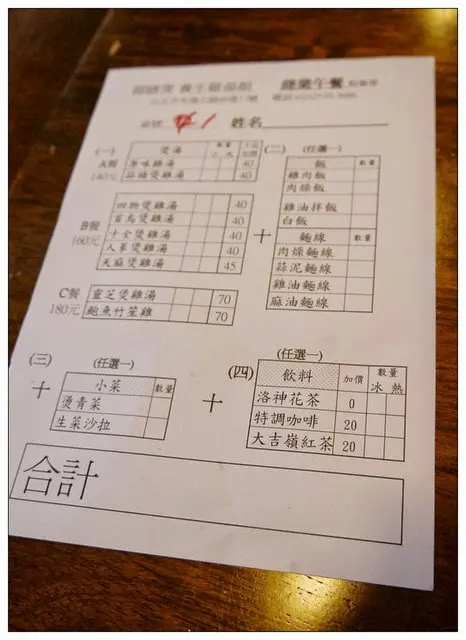 養生雞湯館 商業午餐 點餐單
姓名
(一) 煲湯 數量 小 大
A餐 原味雞湯 40
140元 蒜頭煲雞湯 40
四物煲雞湯 40
首烏煲雞湯 40
B餐 十全煲雞湯 40
160元 人蔘煲雞湯 40
天麻煲雞湯 45
C餐 靈芝煲雞湯 70
180元 鮑魚竹笙雞 70
+
(二) (任選一)
飯 數量
雞肉飯
肉燥飯
雞油拌飯
白飯
麵線 數量
肉燥麵線
蒜泥麵線
雞油麵線
麻油麵線
(三) (任選一)
+
小菜 數量
燙青菜
生菜沙拉
+
(四) (任選一)
飲料 加價 數量 冰 熱
洛神花茶 0
特調咖啡 20
大吉嶺紅茶 20
合計